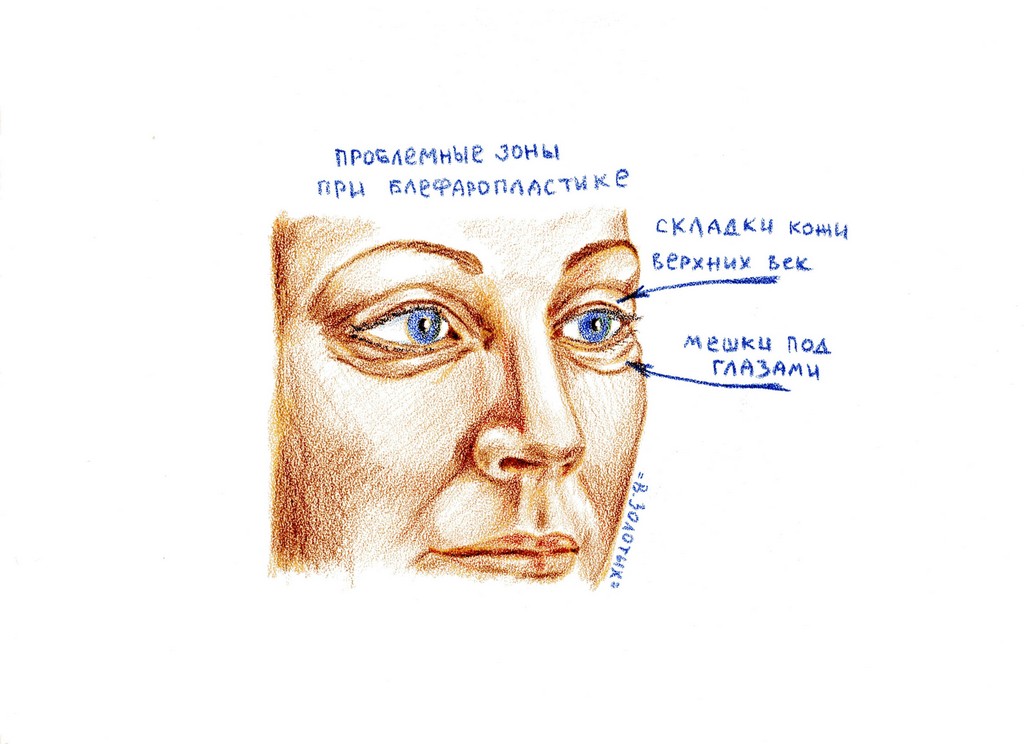 ПРОБЛЕМНЫЕ ЗОНЫ
ПРИ БЛЕФАРОПЛАСТИКЕ
СКЛАДКИ КОЖИ
ВЕРХНИХ ВЕК
МЕШКИ ПОД
ГЛАЗАМИ
=В.ЗОЛОТЫХ=